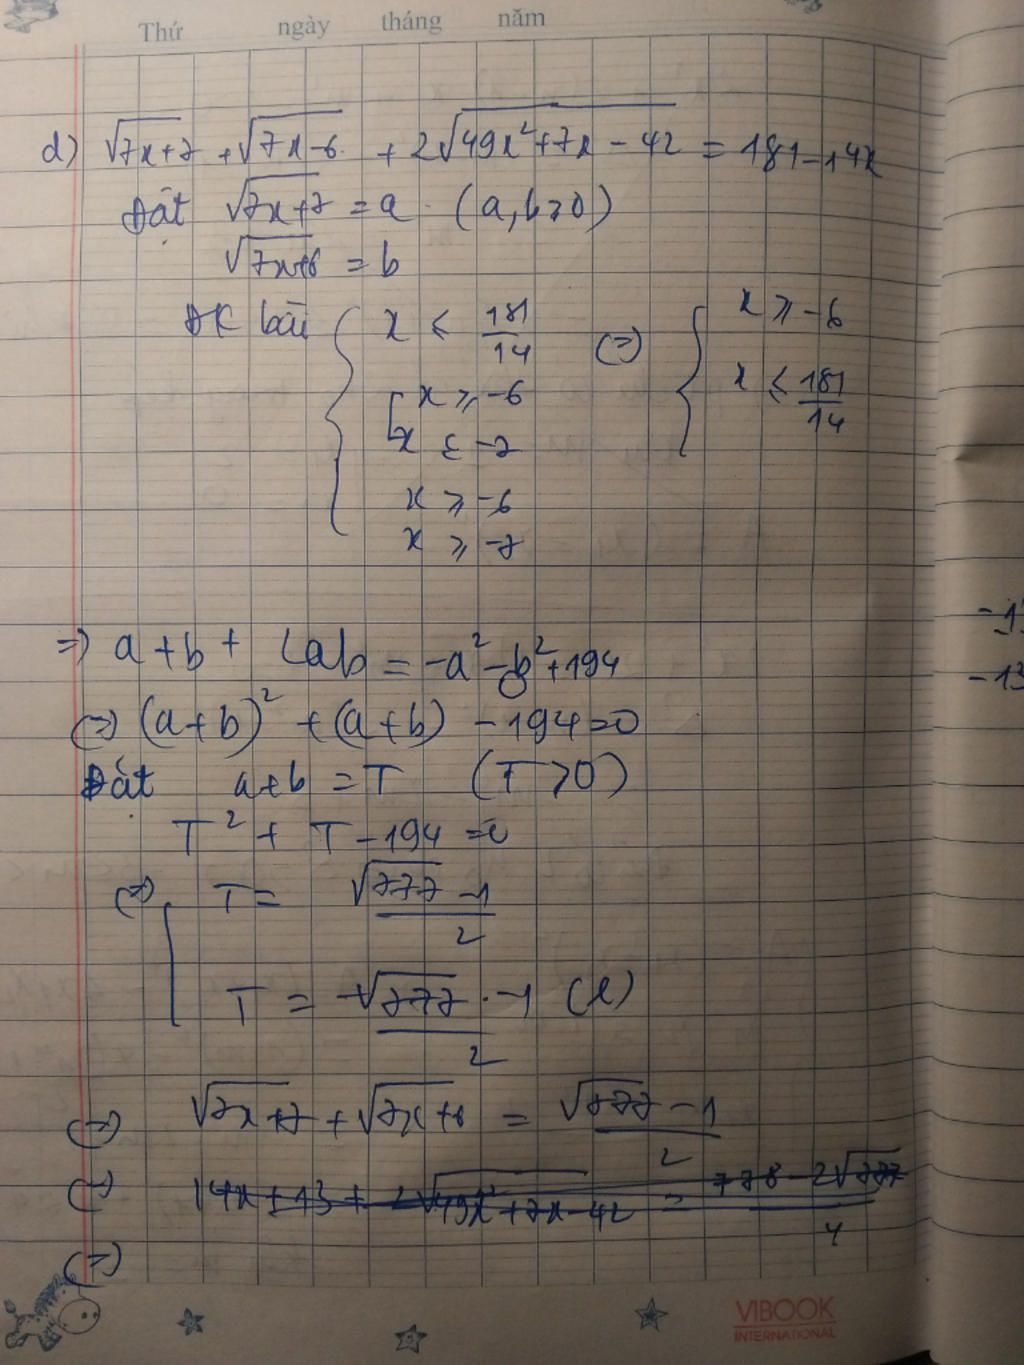 Thứ ngày tháng năm
d) √(7x+7) + √(7x-6) + 2√(49x²+7x-42) = 181-14x
Đặt √(7x+7) = a. (a,b≥0)
√(7x+6) = b
ĐK bài { x ≤ 181/14 (=) { x ≥ -6
[ x ≥ -6 x ≤ 181/14
x ≤ -7
x ≥ -6
x ≥ -7
=) a+b + 2ab = -a²-b²+194
(=) (a+b)² + (a+b) - 194=0
Đặt a+b = T (T>0)
T² + T - 194 = 0
(=) [ T = (√777 - 1)/2
T = (-√777 - 1)/2 (l)
(=) √(7x+7) + √(7x+6) = (√777 - 1)/2
(=) 14x+13 + 2√(49x²+7x-42) = (778-2√777)/4
(=)
VIBOOK
INTERNATIONAL